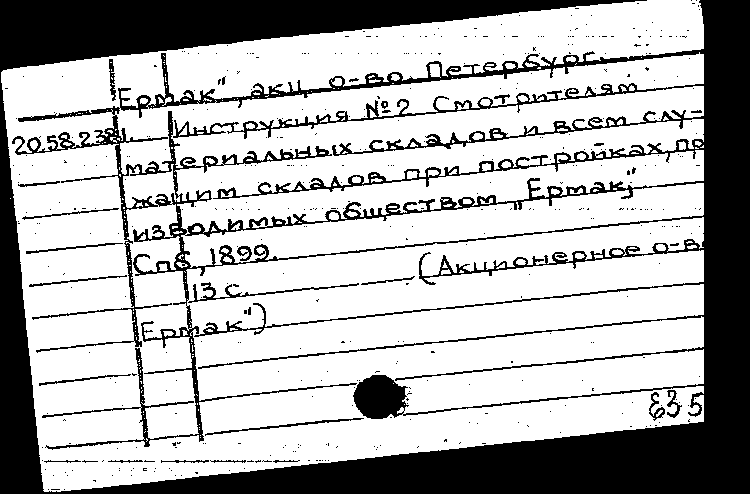 Ермак", акц. о-во. Петербург.
20.58.2.381. Инструкция №2 Смотрителям
материальных складов и всем слу-
жащим складов при постройках, пр
изводимых обществом „Ермак",
Спб, 1899.
13 с. (Акционерное о-во
Ермак").
835